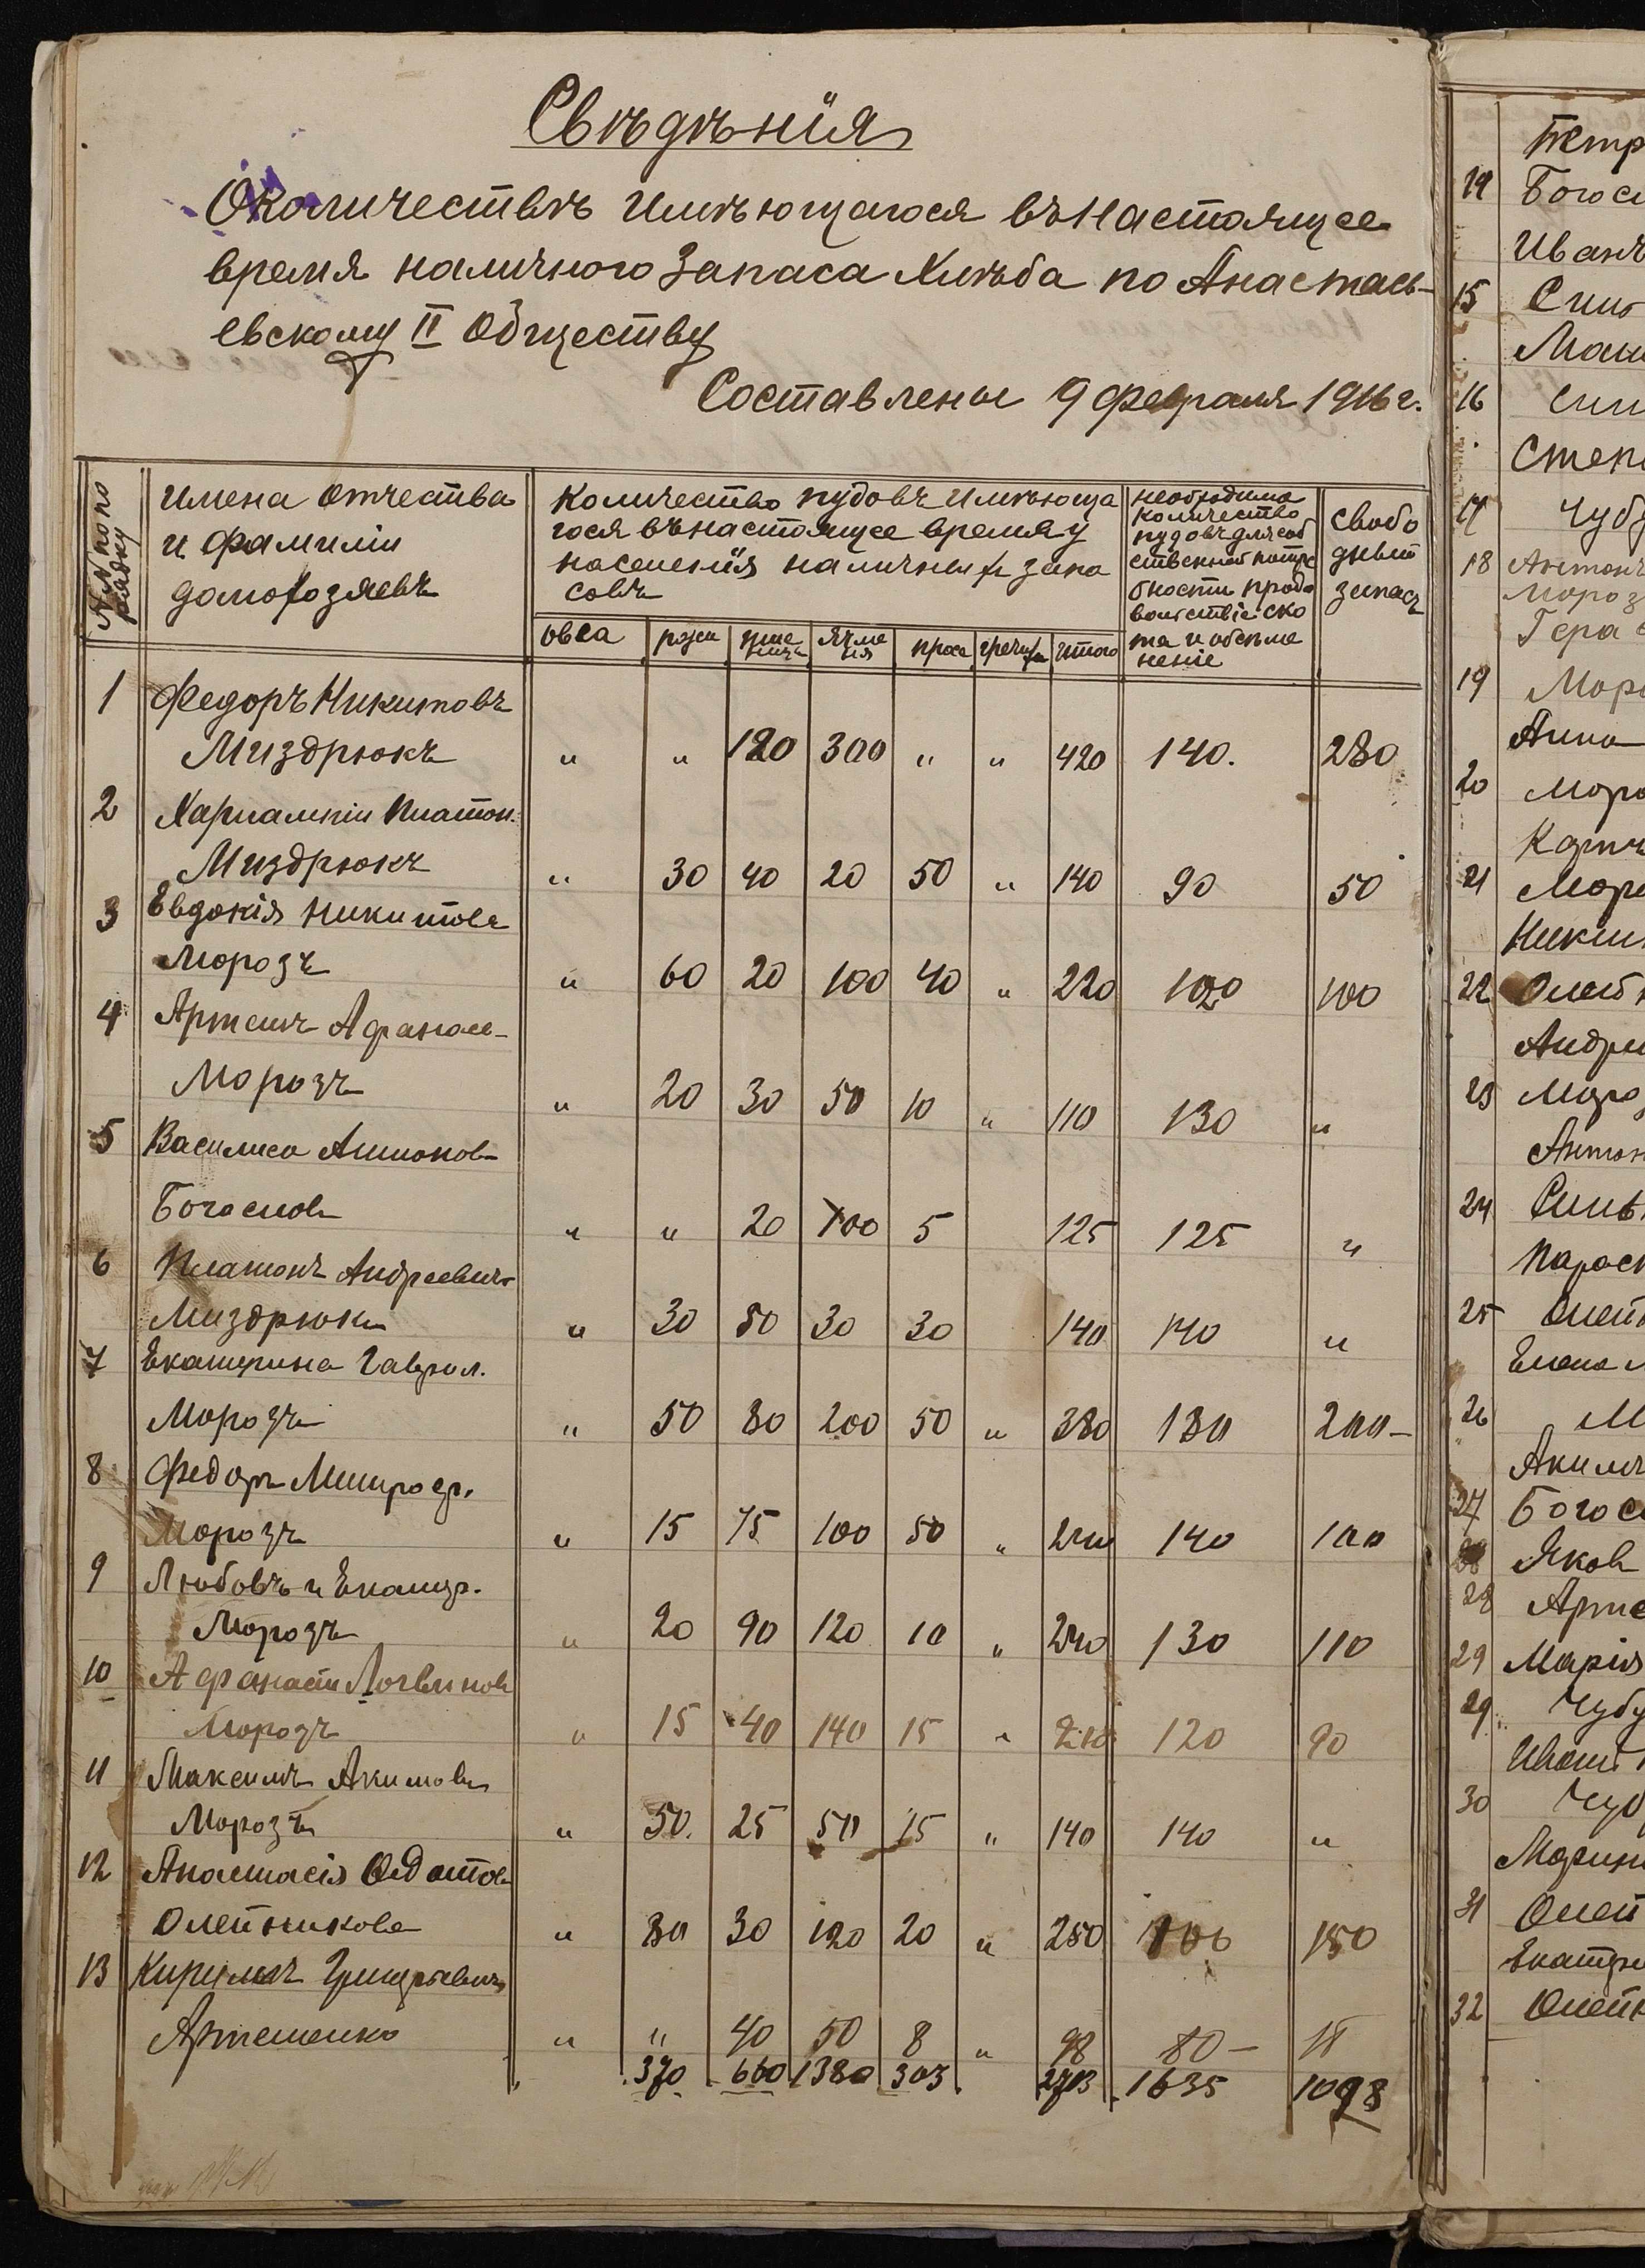 Свѣдѣнія
О количествѣ имѣющагося въ настоящее
время наличного запаса хлѣба по Анастась-
евскому II обществу
Составлены 9 февраля 1916 г.
№№ по порядку
имена отчества
и фамиліи
домохозяевъ
количество пудовъ имѣюща
гося въ настоящее время у
населенія наличных запа
совъ
необходима
количество
пудовъ для соб
ственной потре
бности продо
вольствіе ско
та и обсѣме
неніе
свобо
дный
запасъ
овса ржи пше ница ячме ня проса гречихи итого
1 Федоръ Никитовъ
Миздрюкъ " " 120 300 " " 420 140. 280
2 Харлампій Платон.
Миздрюкъ " 30 40 20 50 " 140 90 50
3 Евдокія Никитова
Морозъ " 60 20 100 40 " 220 120 100
4 Артемъ Афанасе-
Морозъ " 20 30 50 10 " 110 130 "
5 Василиса
Богаснов " " 20 100 5 125 125 "
6 Платонъ Андреевичъ
Миздрюкъ " 30 50 30 30 140 140 "
7 Екатерина Гаврил.
Морозъ " 50 80 200 50 " 380 180 200-
8 Федоръ Митроф.
Морозъ " 15 75 100 50 " 240 140 100
9 Любовъ и Екатер.
Морозъ " 20 90 120 10 " 240 130 110
10 Афанасій Логвинов
Морозъ " 15 40 140 15 " 210 120 90
11 Максимъ Акимовъ
Морозъ " 50. 25 50 15 " 140 140 "
12 Анастасія Федотов
Олейникова " 80 30 120 20 " 250 100 150
13 Кирилъ Григорьевичъ
Артеменко " " 40 50 8 " 98 80- 18
370 660 1380 303 " 2713 1635 1098
Петр
14 Богос
Иванъ
15
16
Степ
17 Чуб
18 Антонъ
Мороз
Гера
19 Моро
Анна
20 Моро
21 Моро
Никит
22 Олей
Андре
23 Мороз
Антон
24
Парас
25 Олей
Елена
26 М
Акимъ
27 Богос
28 Яков
28 Арте
29 Марія
29 Чубу
30 Чуб
Марин
31 Олей
Екатери
32 Олей